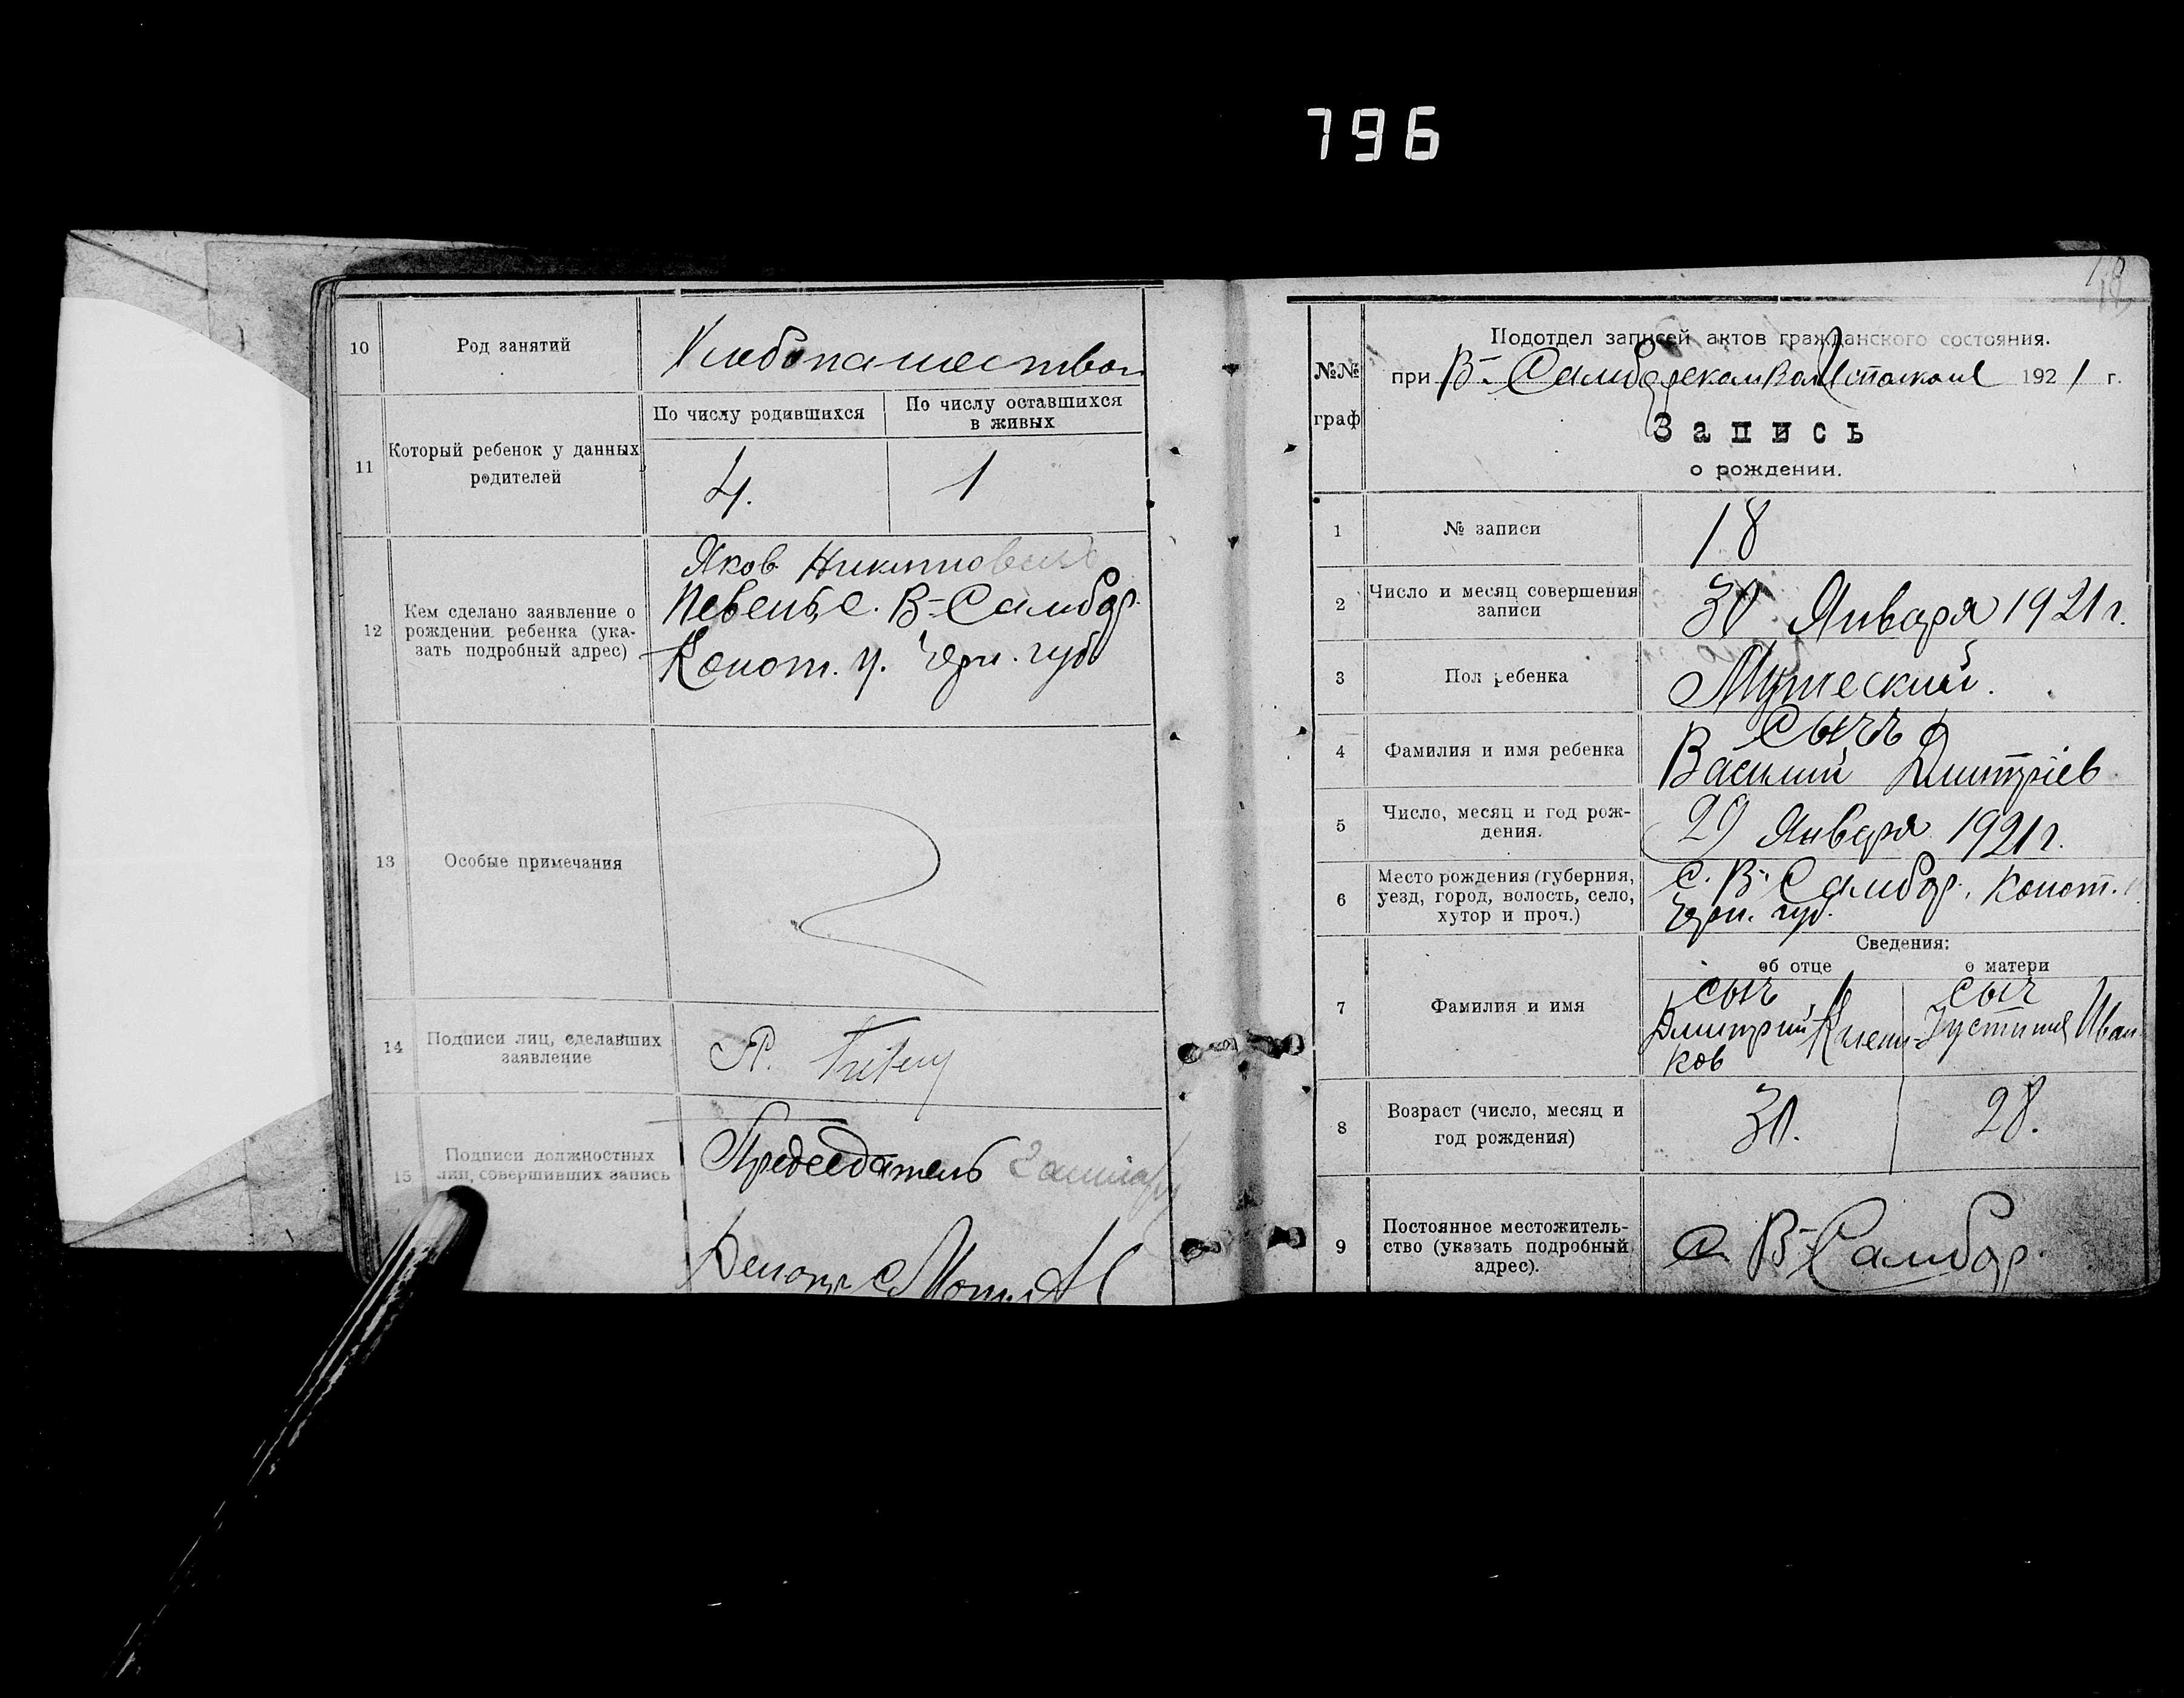 796
10 Род занятий Хлебопашество
11 Который ребенок у данных родителей
По числу родившихся По числу оставшихся в живых
4. 1
12 Кем сделано заявление о рождении ребенка (указать подробный адрес)
Яков Никитович
Певень, с. В-Самбор.
Конот. у. Черн. губ
13 Особые примечания
14 Подписи лиц, сделавших заявление
Я.
15 Подписи должностных лиц, совершивших запись
Председатель
18
№№ граф
Подотдел записей актов гражданского состояния.
при В-Самборском 1921 г.
Запись
о рождении.
1 № записи 18
2 Число и месяц совершения записи 30 Января 1921 г.
3 Пол ребенка Мужеский.
4 Фамилия и имя ребенка Сычъ
Василий Дмитріев
5 Число, месяц и год рождения. 29 Января 1921 г.
6 Место рождения (губерния, уезд, город, волость, село, хутор и проч.)
с. В-Самбор. Конот.
Черн. губ.
Сведения:
об отце о матери
7 Фамилия и имя
Сыч Сыч
Дмитрий Иван
ков
8 Возраст (число, месяц и год рождения) 30. 28.
9 Постоянное местожительство (указать подробный адрес). с. В-Самбор.